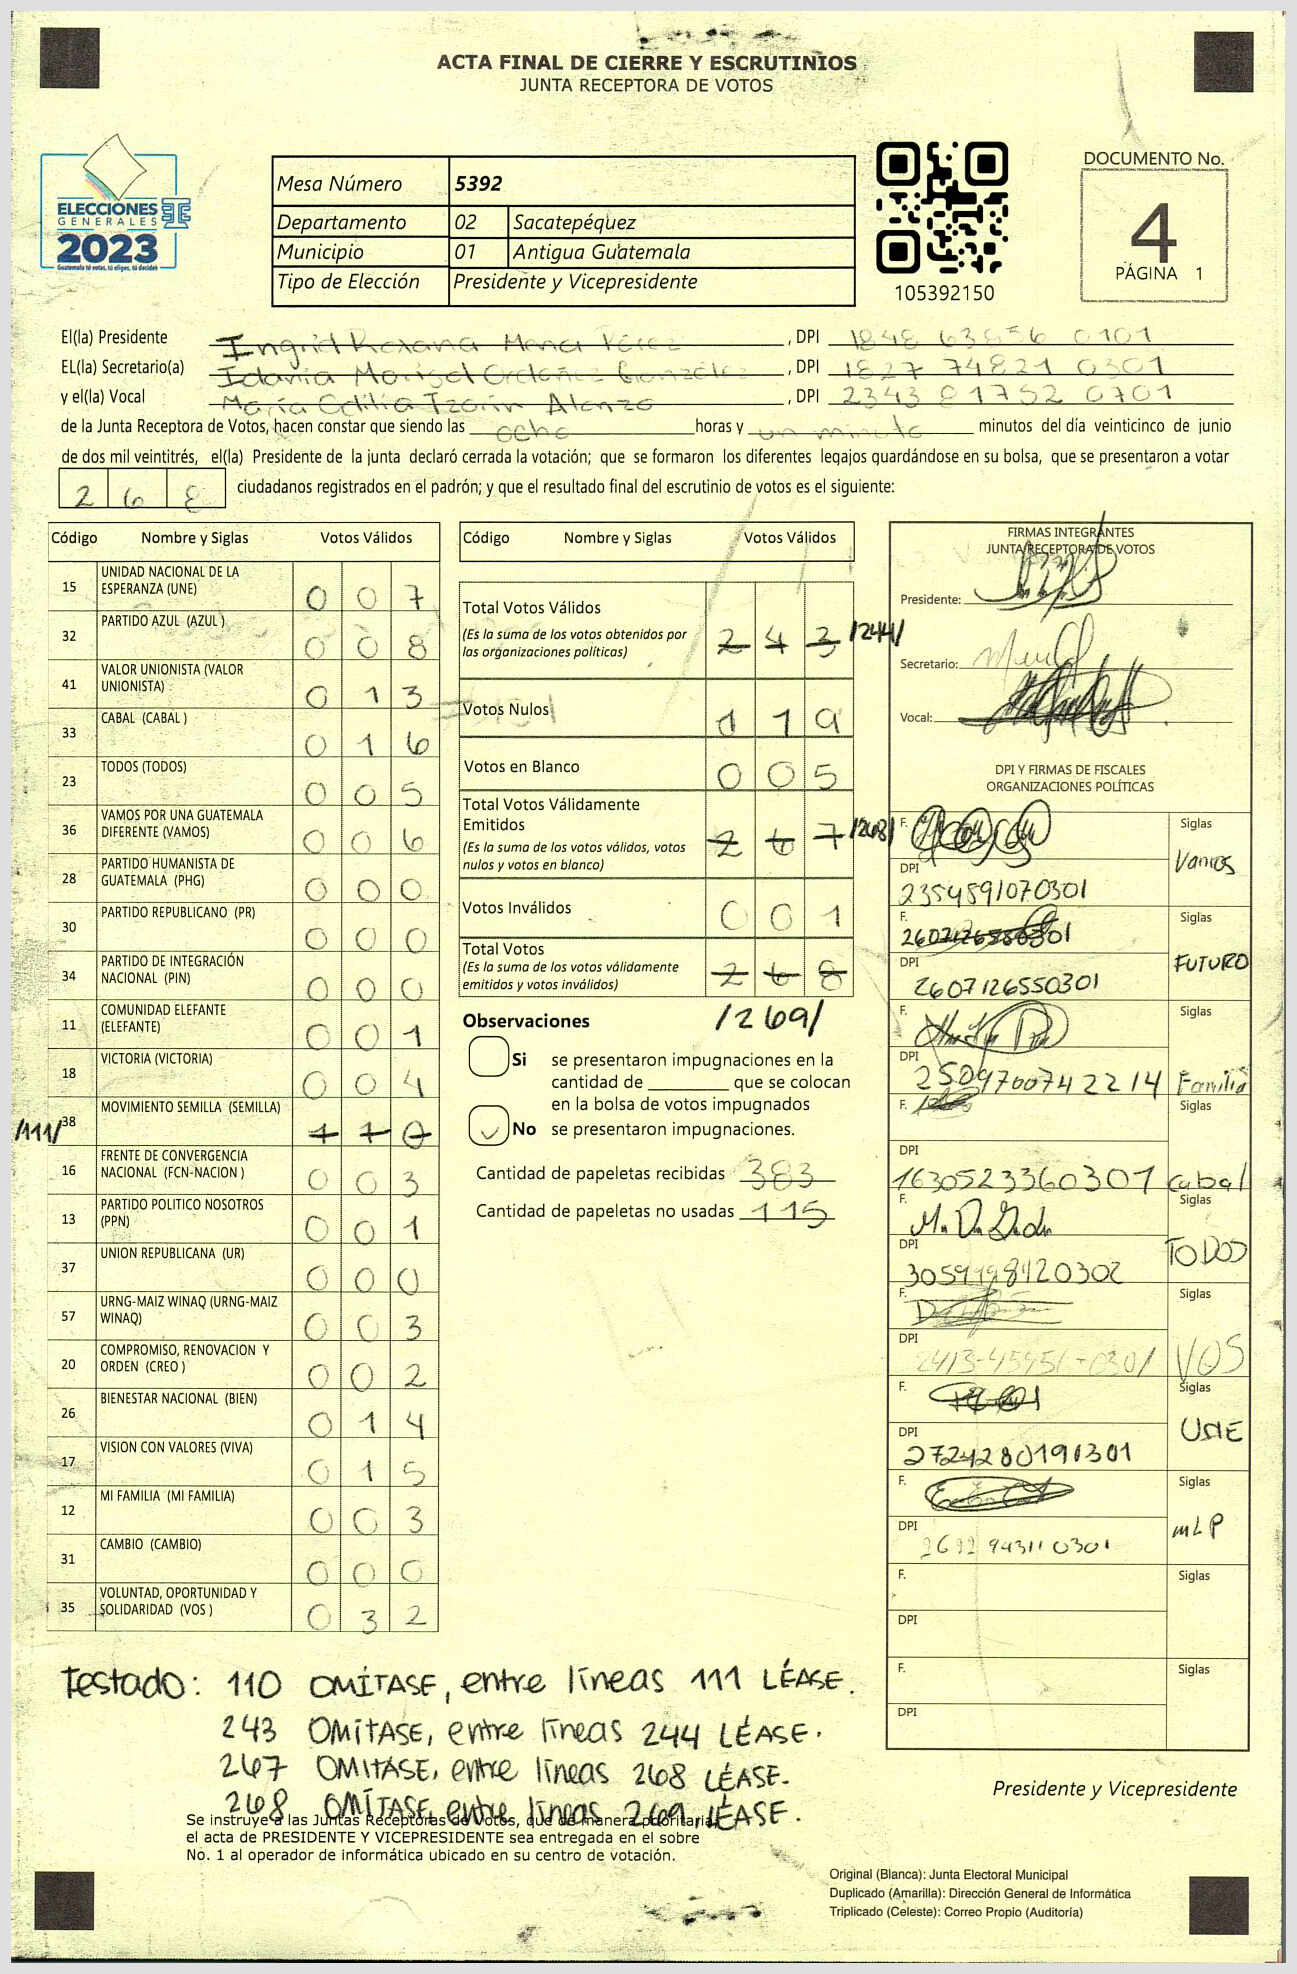 ACTA FINAL DE CIERRE Y ESCRUTINIOS
JUNTA RECEPTORA DE VOTOS
ELECCIONES
GENERALES
2023
Guatemala tú votas, tú eliges, tú decides
Mesa Número 5392
Departamento 02 Sacatepéquez
Municipio 01 Antigua Guatemala
Tipo de Elección Presidente y Vicepresidente
105392150
DOCUMENTO No.
4
PÁGINA 1
El(la) Presidente Ingrid Roxana Mena Pérez, DPI 1848 63856 0101
EL(la) Secretario(a) Idania Marisol Ordoñez González, DPI 1827 74821 0301
y el(la) Vocal María Odilia Tzorin Alonzo, DPI 2343 81752 0701
de la Junta Receptora de Votos, hacen constar que siendo las ocho horas y un minuto minutos del día veinticinco de junio
de dos mil veintitrés, el(la) Presidente de la junta declaró cerrada la votación; que se formaron los diferentes legajos guardándose en su bolsa, que se presentaron a votar
268 ciudadanos registrados en el padrón; y que el resultado final del escrutinio de votos es el siguiente:
Código Nombre y Siglas Votos Válidos
15 UNIDAD NACIONAL DE LA ESPERANZA (UNE) 0 0 7
32 PARTIDO AZUL (AZUL) 0 0 8
41 VALOR UNIONISTA (VALOR UNIONISTA) 0 1 3
33 CABAL (CABAL) 0 1 6
23 TODOS (TODOS) 0 0 5
36 VAMOS POR UNA GUATEMALA DIFERENTE (VAMOS) 0 0 6
28 PARTIDO HUMANISTA DE GUATEMALA (PHG) 0 0 0
30 PARTIDO REPUBLICANO (PR) 0 0 0
34 PARTIDO DE INTEGRACIÓN NACIONAL (PIN) 0 0 0
11 COMUNIDAD ELEFANTE (ELEFANTE) 0 0 1
18 VICTORIA (VICTORIA) 0 0 4
/111/ 38 MOVIMIENTO SEMILLA (SEMILLA) 1 1 0
16 FRENTE DE CONVERGENCIA NACIONAL (FCN-NACION) 0 0 3
13 PARTIDO POLITICO NOSOTROS (PPN) 0 0 1
37 UNION REPUBLICANA (UR) 0 0 0
57 URNG-MAIZ WINAQ (URNG-MAIZ WINAQ) 0 0 3
20 COMPROMISO, RENOVACION Y ORDEN (CREO) 0 0 2
26 BIENESTAR NACIONAL (BIEN) 0 1 4
17 VISION CON VALORES (VIVA) 0 1 5
12 MI FAMILIA (MI FAMILIA) 0 0 3
31 CAMBIO (CAMBIO) 0 0 0
35 VOLUNTAD, OPORTUNIDAD Y SOLIDARIDAD (VOS) 0 3 2
Código Nombre y Siglas Votos Válidos
Total Votos Válidos 2 4 3 /244/
(Es la suma de los votos obtenidos por
las organizaciones políticas)
Votos Nulos 0 1 9
Votos en Blanco 0 0 5
Total Votos Válidamente
Emitidos 2 6 7 /268/
(Es la suma de los votos válidos, votos
nulos y votos en blanco)
Votos Inválidos 0 0 1
Total Votos 2 6 8
(Es la suma de los votos válidamente
emitidos y votos inválidos)
/269/
Observaciones
Si se presentaron impugnaciones en la
cantidad de ________ que se colocan
en la bolsa de votos impugnados
No se presentaron impugnaciones.
Cantidad de papeletas recibidas 383
Cantidad de papeletas no usadas 115
FIRMAS INTEGRANTES
JUNTA RECEPTORA DE VOTOS
Presidente:
Secretario:
Vocal:
DPI Y FIRMAS DE FISCALES
ORGANIZACIONES POLÍTICAS
F. Siglas
DPI Vamos
2354891070301
F. Siglas
2607126550301
DPI FUTURO
2607126550301
F. Siglas
DPI
2509700742214 Familia
F. Siglas
DPI
1630523360301 Cabal
F. Siglas
DPI TODOS
3059198420302
F. Siglas
DPI
2413-45451-0301 VOS
F. Siglas
DPI UNE
2724280190301
F. Siglas
DPI MLP
2692 94311 0301
F. Siglas
DPI
F. Siglas
DPI
Testado: 110 OMÍTASE, entre líneas 111 LÉASE.
243 OMÍTASE, entre líneas 244 LÉASE.
267 OMITASE, entre líneas 268 LÉASE.
268 OMÍTASE, entre líneas 269 LÉASE.
Presidente y Vicepresidente
Se instruye a las Juntas Receptoras de Votos, que de manera prioritaria,
el acta de PRESIDENTE Y VICEPRESIDENTE sea entregada en el sobre
No. 1 al operador de informática ubicado en su centro de votación.
Original (Blanca): Junta Electoral Municipal
Duplicado (Amarilla): Dirección General de Informática
Triplicado (Celeste): Correo Propio (Auditoría)